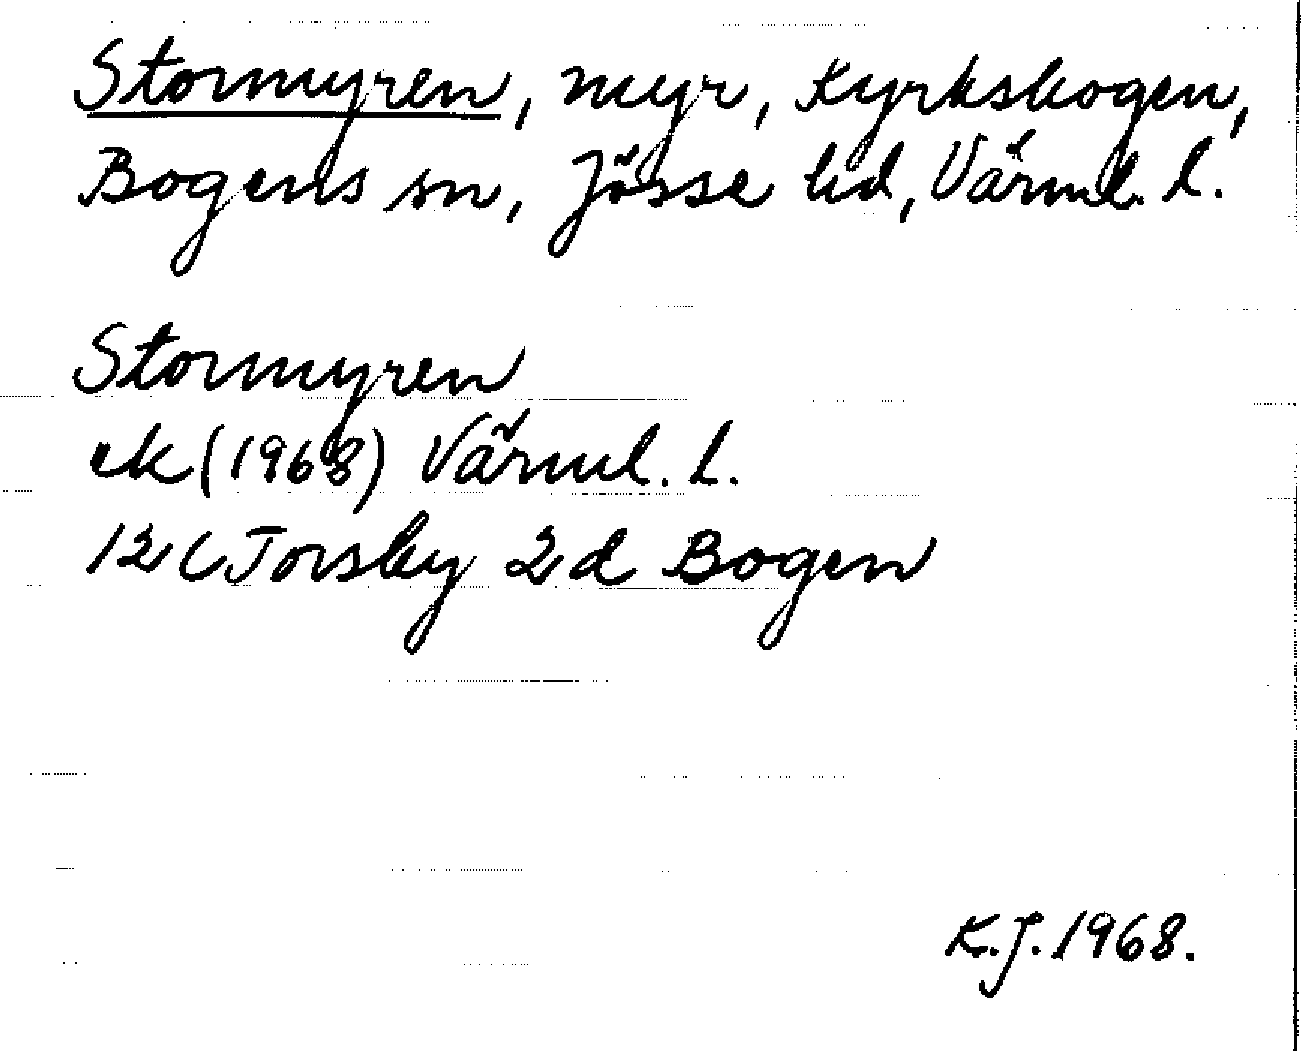 Stormyren, myr, Kyrkskogen,
Bogens sn, Jösse hd, Värml. l.
Stormyren
ek (1968) Värml. l.
12 C Torsby 2d Bogen
K.J. 1968.